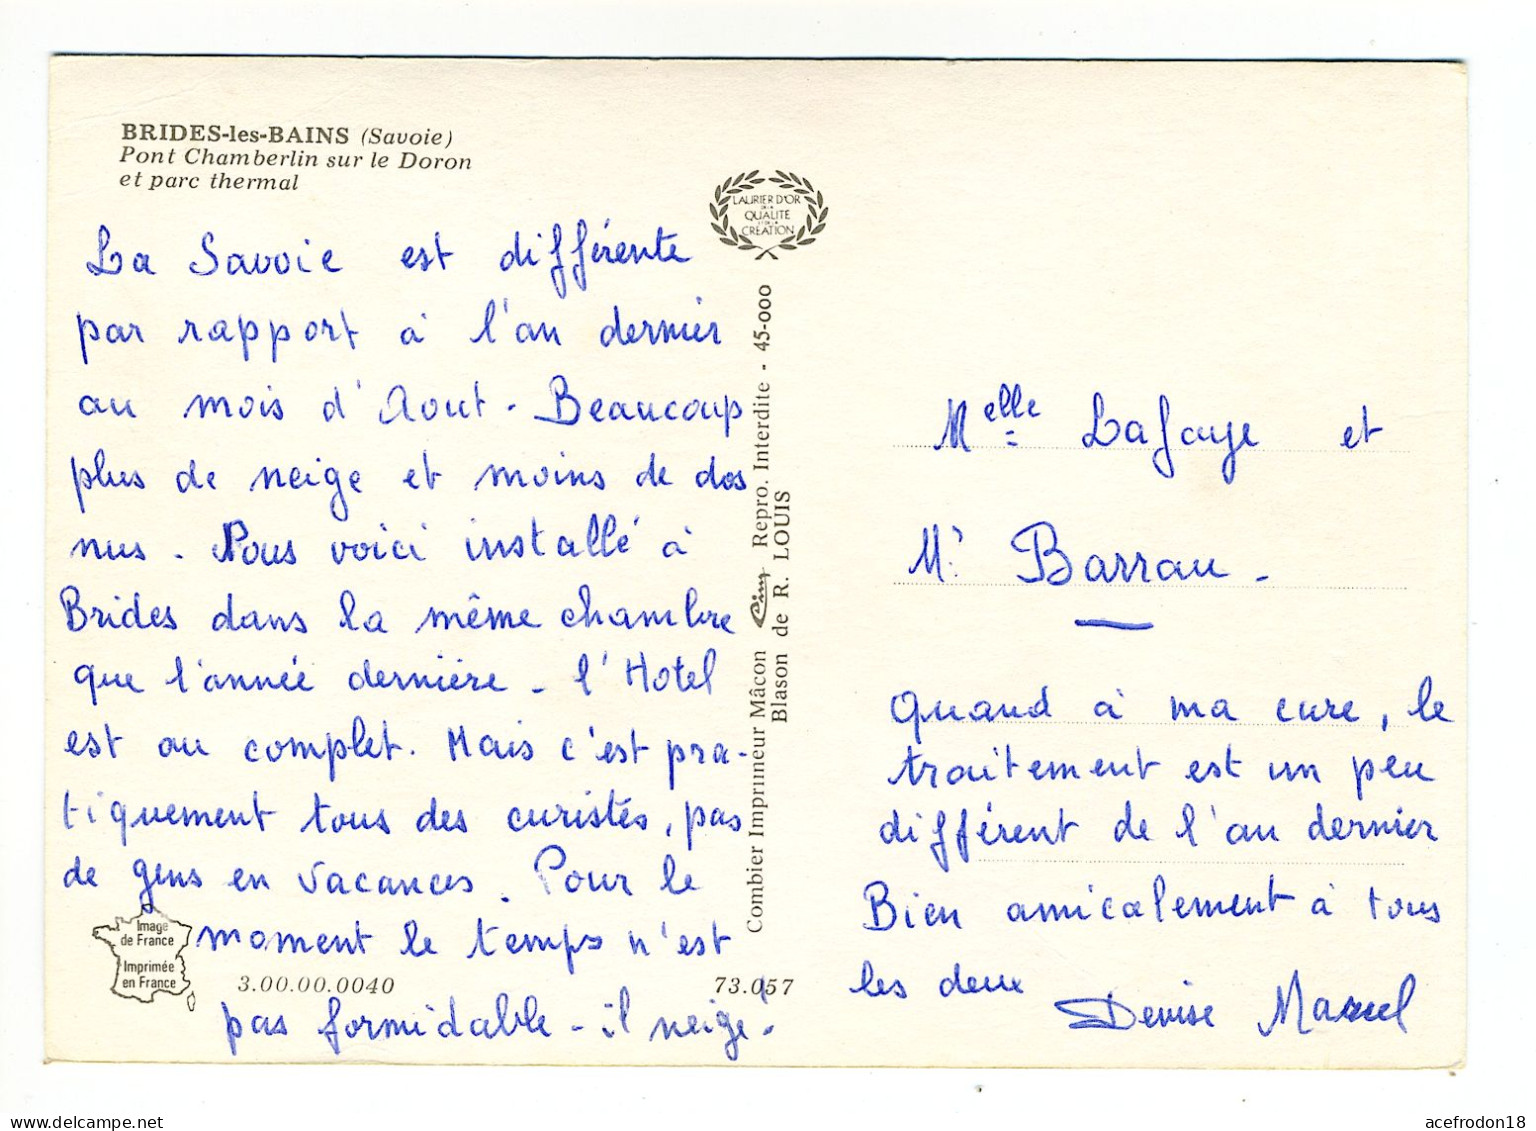 BRIDES-les-BAINS (Savoie)
Pont Chamberlin sur le Doron
et parc thermal
LAURIER D'OR
DE LA
QUALITÉ
ET DE LA
CRÉATION
La Savoie est différente
par rapport à l'an dernier
au mois d'Aout. Beaucoup
plus de neige et moins de dos
nus. Nous voici installé à
Brides dans la même chambre
que l'année dernière. l'Hotel
est au complet. Mais c'est pra-
tiquement tous des curistés, pas
de gens en vacances. Pour le
moment le temps n'est
pas formidable - il neige!
Image
de France
Imprimée
en France
3.00.00.0040
73.057
Combier Imprimeur Mâcon Cim Repro. Interdite - 45-000
Blason de R. LOUIS
Melle Lafaye et
Mr Barrau -
Quand à ma cure, le
traitement est un peu
différent de l'an dernier
Bien amicalement à tous
les deux
Denise Marcel
delcampe.net
acefrodon18